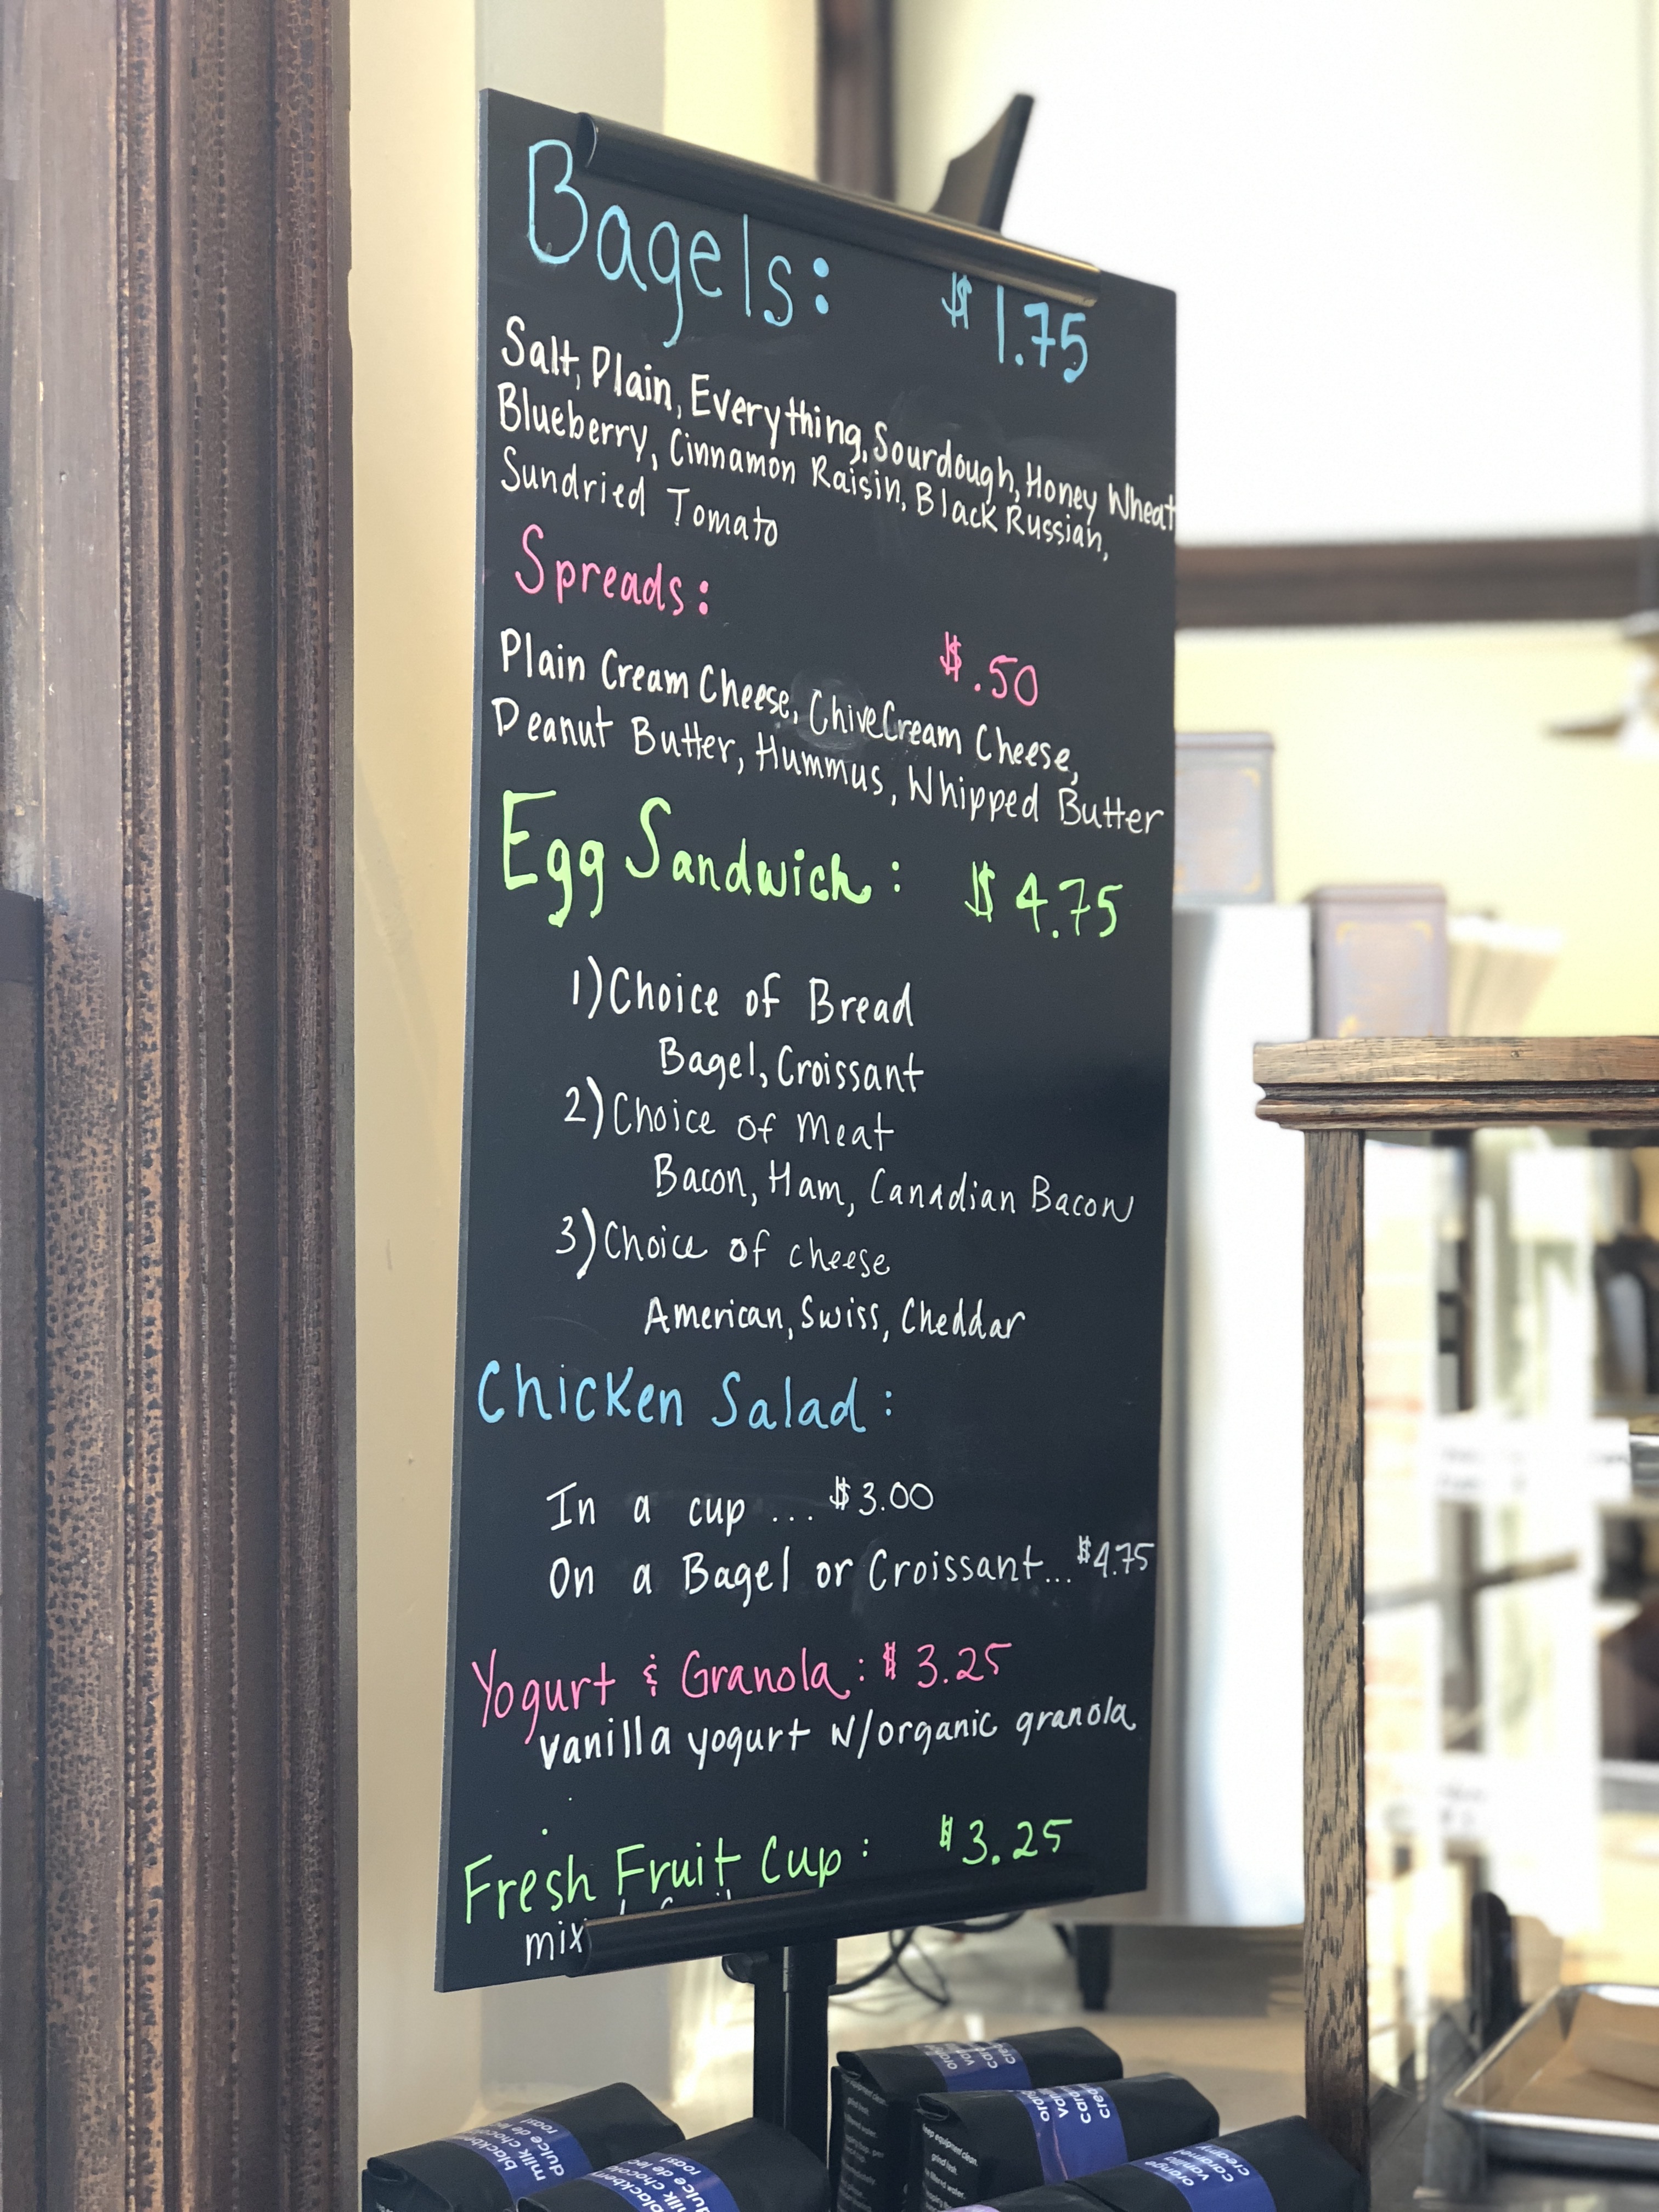 Bagels: $1.75
Salt, Plain, Everything, Sourdough, Honey Wheat
Blueberry, Cinnamon Raisin, Black Russian,
Sundried Tomato
Spreads: $.50
Plain Cream Cheese, Chive Cream Cheese,
Peanut Butter, Hummus, Whipped Butter
Egg Sandwich: $4.75
1) Choice of Bread
Bagel, Croissant
2) Choice of Meat
Bacon, Ham, Canadian Bacon
3) Choice of cheese
American, Swiss, Cheddar
Chicken Salad:
In a cup ... $3.00
On a Bagel or Croissant... $4.75
Yogurt & Granola: $3.25
vanilla yogurt w/organic granola
Fresh Fruit Cup: $3.25
mix
milk choco
dulce de le
roast
orange
vanilla
caramel
creamy